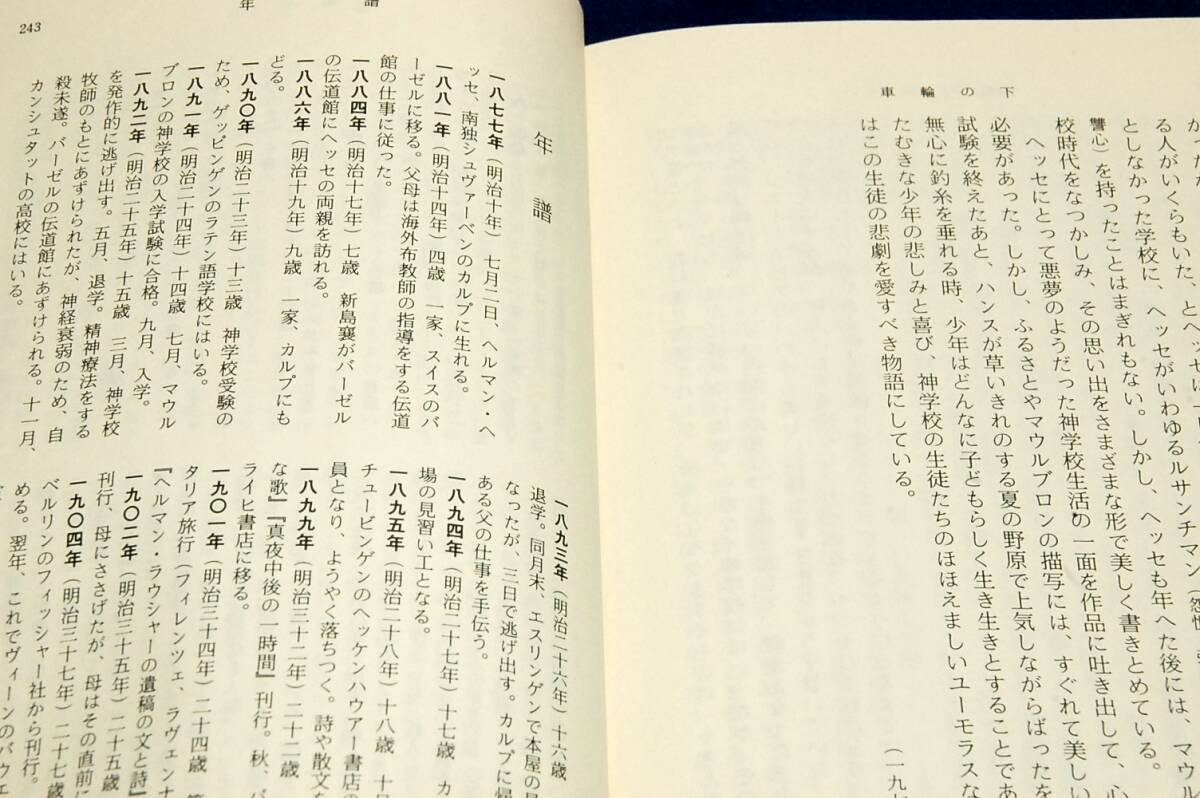 車輪の下
る人がいくらもいた、とヘッセは
としなかった学校に、ヘッセがいわゆるルサンチマン（怨恨
讐心）を持ったことはまぎれもない。しかし、ヘッセも年へた後には、マウル
校時代をなつかしみ、その思い出をさまざまな形で美しく書きとめている。
ヘッセにとって悪夢のようだった神学校生活の一面を作品に吐き出して、心
必要があった。しかし、ふるさとやマウルブロンの描写には、すぐれて美しい
試験を終えたあと、ハンスが草いきれのする夏の野原で上気しながらばったを
無心に釣糸を垂れる時、少年はどんなに子どもらしく生き生きとすることであ
たむきな少年の悲しみと喜び、神学校の生徒たちのほほえましいユーモラスな
はこの生徒の悲劇を愛すべき物語にしている。
（一九七
年譜
243
年譜
一八七七年（明治十年）　七月二日、ヘルマン・ヘ
ッセ、南独シュヴァーベンのカルプに生れる。
一八八一年（明治十四年）四歳　一家、スイスのバ
ーゼルに移る。父母は海外布教師の指導をする伝道
館の仕事に従った。
一八八四年（明治十七年）七歳　新島襄がバーゼル
の伝道館にヘッセの両親を訪れる。
一八八六年（明治十九年）九歳　一家、カルプにも
どる。
一八九〇年（明治二十三年）十三歳　神学校受験の
ため、ゲッピンゲンのラテン語学校にはいる。
一八九一年（明治二十四年）十四歳　七月、マウル
ブロンの神学校の入学試験に合格。九月、入学。
一八九二年（明治二十五年）十五歳　三月、神学校
を発作的に逃げ出す。五月、退学。精神療法をする
牧師のもとにあずけられたが、神経衰弱のため、自
殺未遂。バーゼルの伝道館にあずけられる。十一月、
カンシュタットの高校にはいる。
一八九三年（明治二十六年）十六歳
退学。同月末、エスリンゲンで本屋の見
なったが、三日で逃げ出す。カルプに帰
ある父の仕事を手伝う。
一八九四年（明治二十七年）十七歳　カ
場の見習い工となる。
一八九五年（明治二十八年）十八歳　十月
チュービンゲンのヘッケンハウアー書店の
員となり、ようやく落ちつく。詩や散文を
一八九九年（明治三十二年）二十二歳
な歌』『真夜中後の一時間』刊行。秋、バ
ライヒ書店に移る。
一九〇一年（明治三十四年）二十四歳　第
タリア旅行（フィレンツェ、ラヴェンナ
『ヘルマン・ラウシャーの遺稿の文と詩』
一九〇二年（明治三十五年）二十五歳
刊行、母にささげたが、母はその直前に
一九〇四年（明治三十七年）二十七歳
ベルリンのフィッシャー社から刊行。
める。翌年、これでヴィーンのバウェ